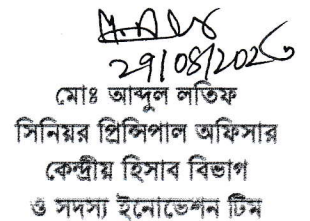 29/08/2026
মোঃ আব্দুল লতিফ
সিনিয়র প্রিন্সিপাল অফিসার
কেন্দ্রীয় হিসাব বিভাগ
ও সদস্য ইনোভেশন টিম